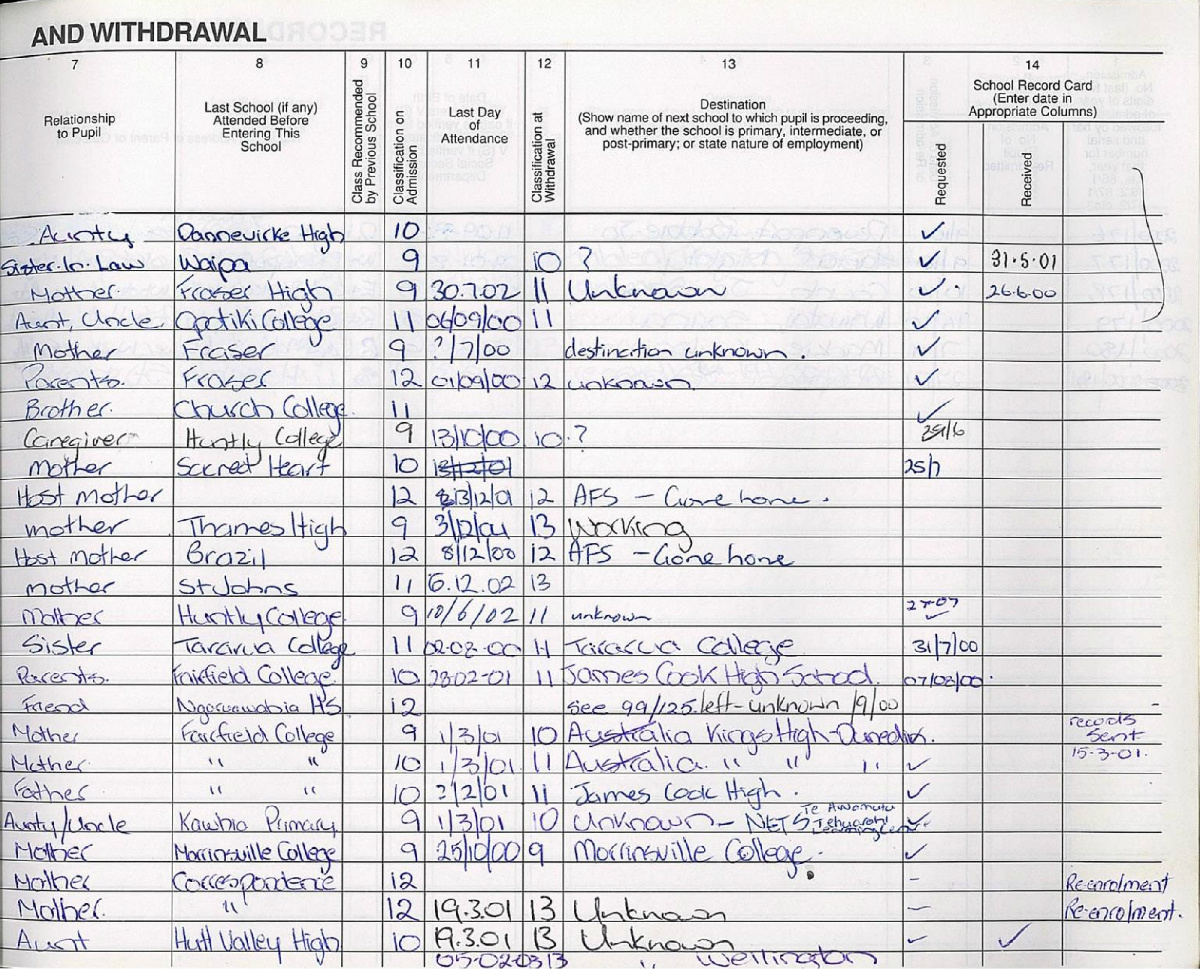 AND WITHDRAWAL
7 8 9 10 11 12 13 14
Relationship to Pupil
Last School (if any) Attended Before Entering This School
Class Recommended by Previous School
Classification on Admission
Last Day of Attendance
Classification at Withdrawal
Destination (Show name of next school to which pupil is proceeding, and whether the school is primary, intermediate, or post-primary; or state nature of employment)
School Record Card (Enter date in Appropriate Columns)
Requested
Received
Aunty Dannevirke High 10 ✓
Sister-In-Law Waipa 9 10 ? ✓ 31.5.01
Mother Fraser High 9 30.7.02 11 Unknown ✓ 26.6.00
Aunt, Uncle Opotiki College 11 06/09/00 11 ✓
Mother Fraser 9 ?/7/00 destination unknown. ✓
Parents. Fraser 12 01/09/00 12 unknown. ✓
Brother. Church College. 11 ✓
Caregiver Huntly College 9 13/10/00 10 ? 29/6
Mother Sacred Heart 10 25/7
Host Mother 12 13/12/01 12 AFS - Gone home.
mother Thames High 9 3/12/04 13 Working
Host mother Brazil 12 8/12/00 12 AFS - Gone home
mother St Johns 11 6.12.02 13
Mother Huntly College 9 10/6/02 11 unknown 27-07 ✓
Sister Tararua College 11 02-08-00 11 Tararua College 31/7/00
Parents. Fairfield College. 10 28-02-01 11 James Cook High School. 07/08/00.
Friend Ngaruawahia HS 12 See 99/125. left - unknown /9/00
Mother Fairfield College 9 1/3/01 10 Australia Kings High - Dunedin. records sent
Mother " " 10 1/3/01 11 Australia. " " " ✓ 15-3-01.
Father " " 10 ?/2/01 11 James Cook High. ✓
Aunty/Uncle Kawhia Primary 9 1/3/01 10 Unknown - NETS Te Awamutu ✓
Mother Morrinsville College 9 25/10/00 9 Morrinsville College. ✓
Mother Correspondence 12 - Re-enrolment
Mother. " 12 19.3.01 13 Unknown - Re-enrolment.
Aunt Hutt Valley High 10 19.3.01 13 Unknown ✓ ✓
05-02-03 13 " Wellington